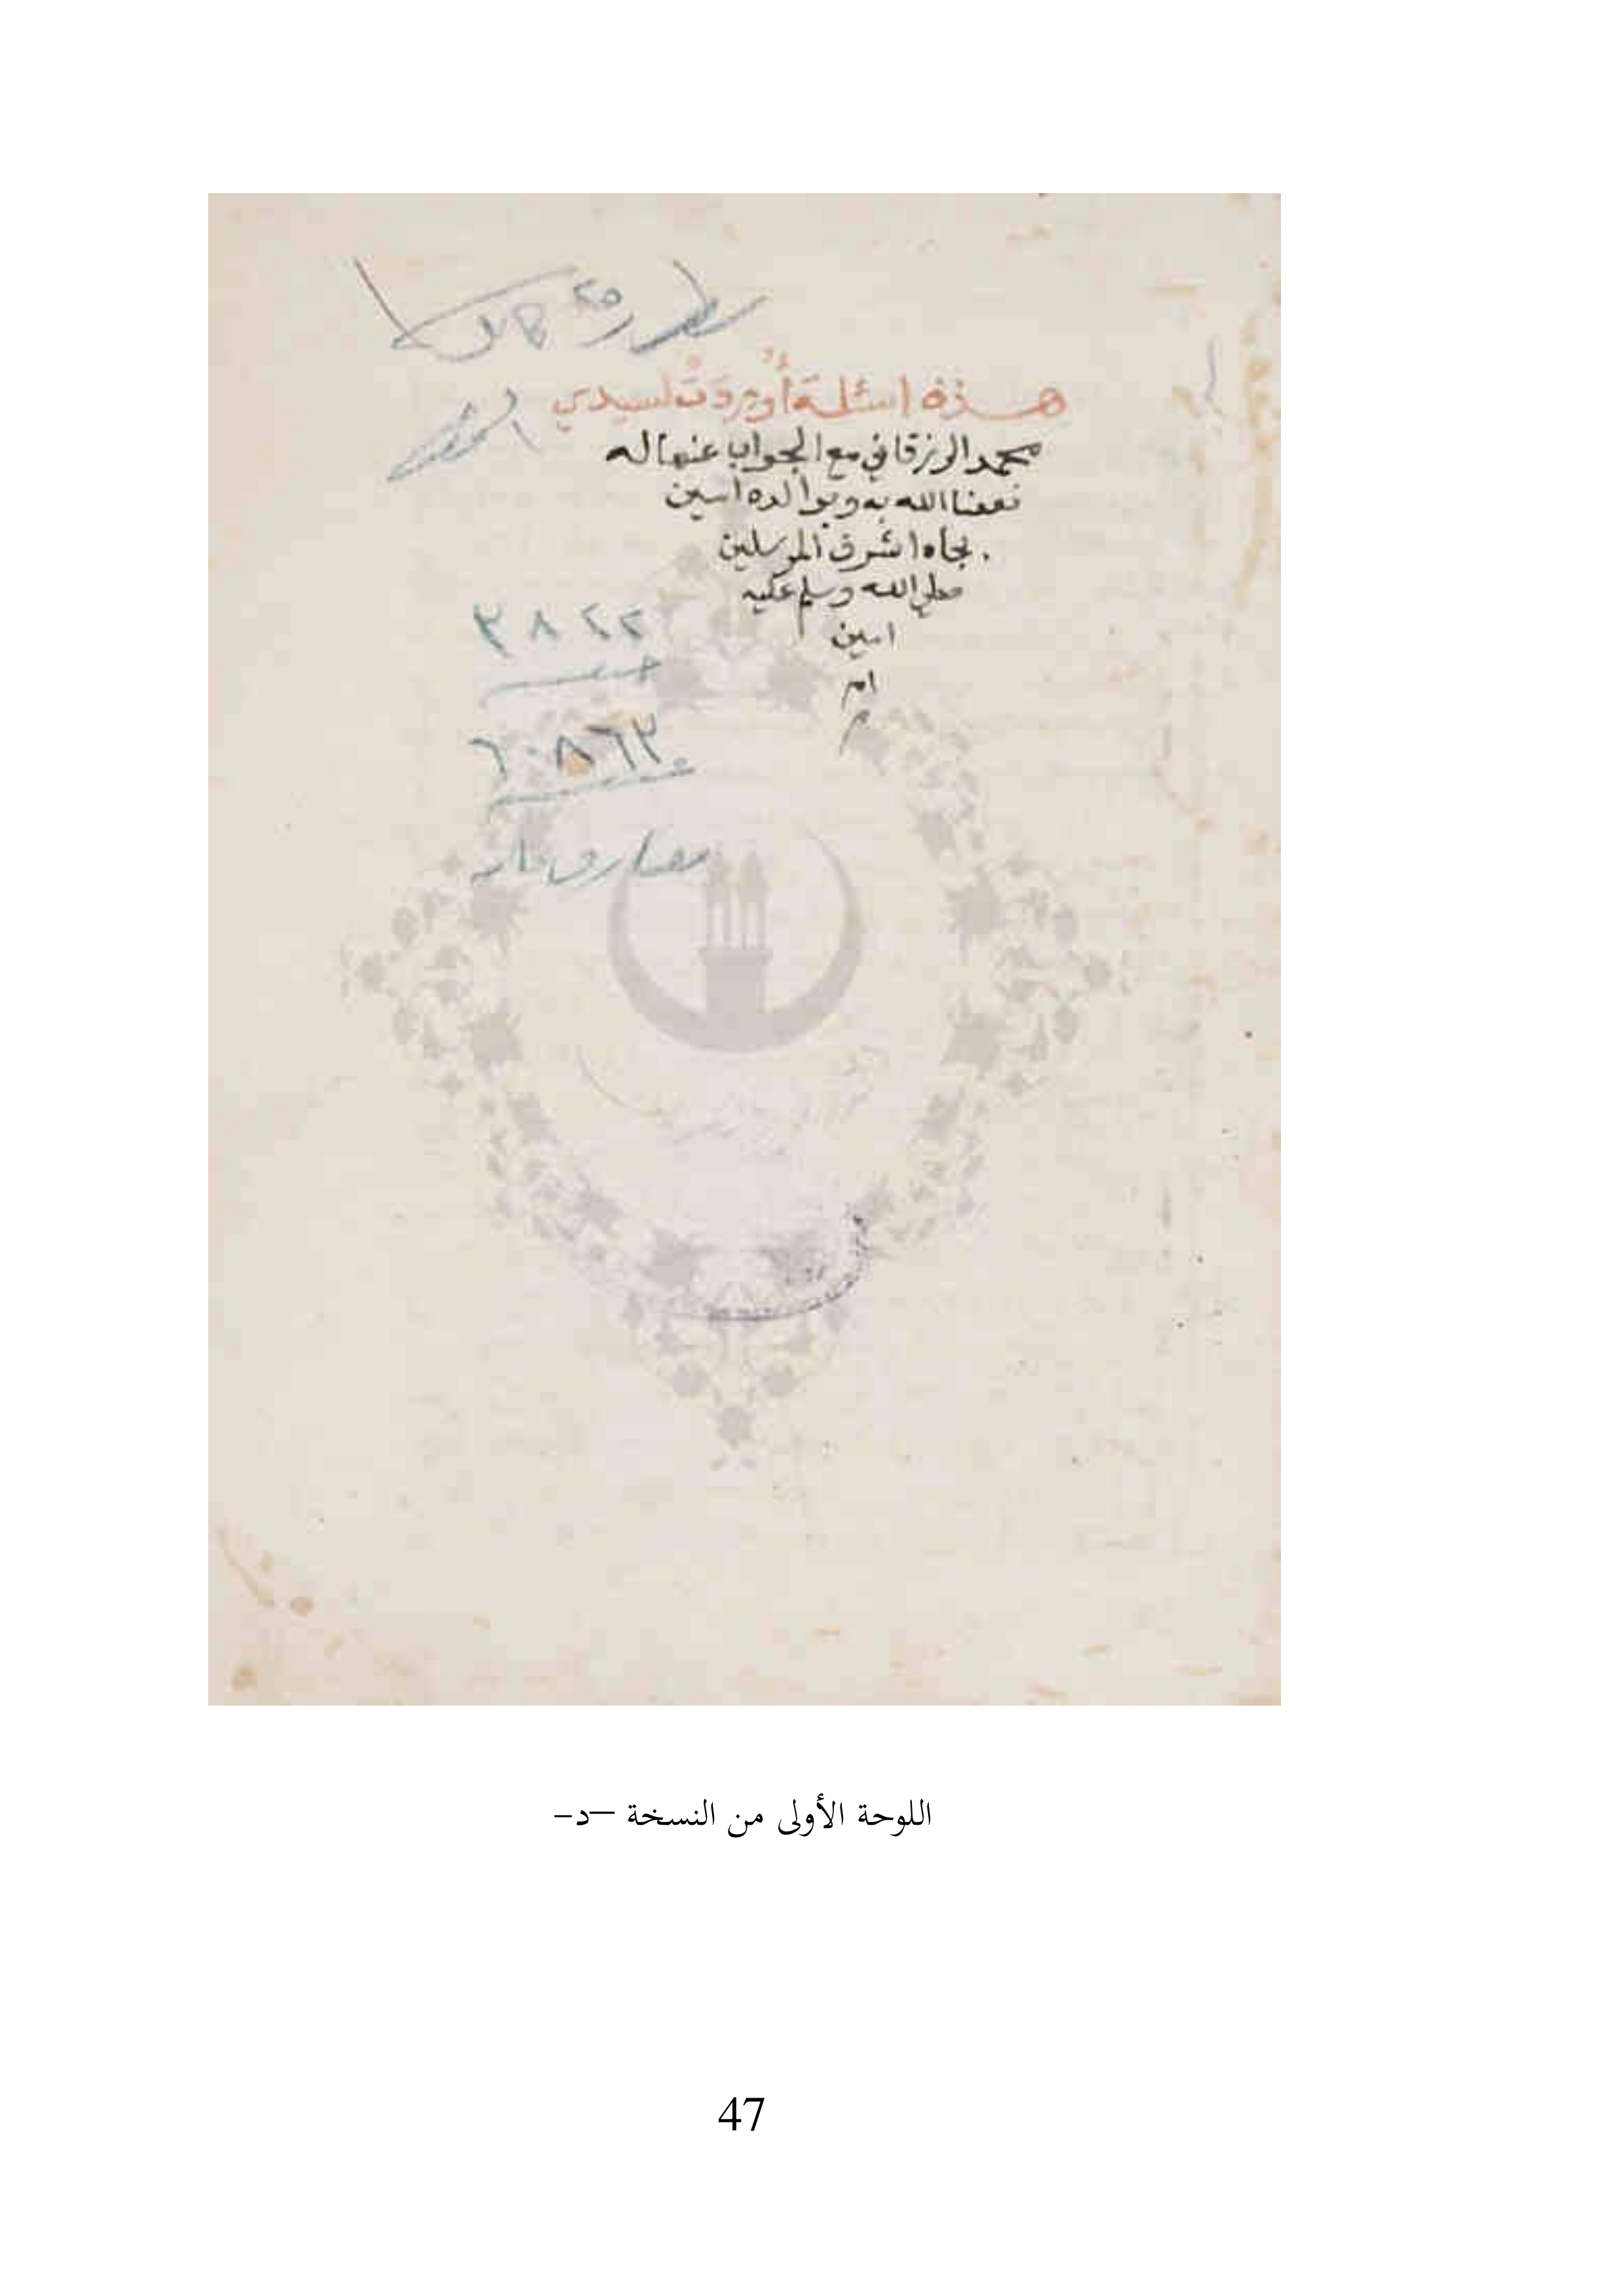 هذه اسئلة أُورِدَتْ لسيدي
محمد الزرقاني مع الجواب عنها له
نفعنا الله به وبوالده امين
بجاه اشرف المرسلين
صلي الله وسلم عليه
امين
ام
م
٣٨٢٢
٦٠٨٦٣
اللوحة الأولى من النسخة –د–
47